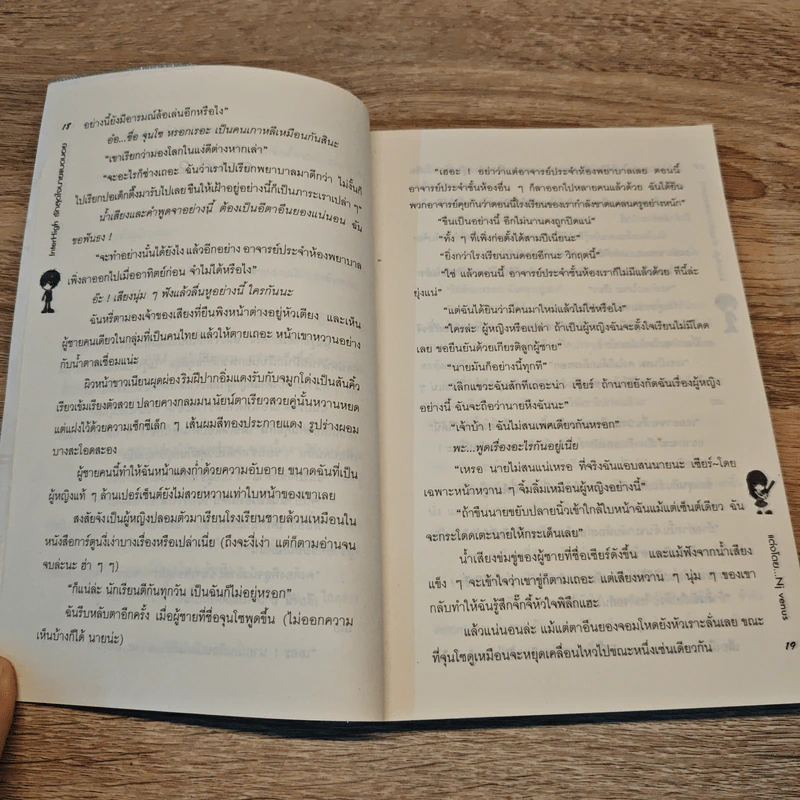 18
อย่างนี้ยังมีอารมณ์ล้อเล่นอีกหรือไง”
อ๋อ...ชื่อ จุนโซ หรอกเรอะ เป็นคนเกาหลีเหมือนกันสินะ
“เขาเรียกว่ามองโลกในแง่ดีต่างหากเล่า”
“จะอะไรก็ช่างเถอะ ฉันว่าเราไปเรียกพยาบาลมาดีกว่า ไม่งั้นก็
ไปเรียกปอเต็กตึ๊งมารับไปเลย ขืนให้เฝ้าอยู่อย่างนี้ก็เป็นภาระเราเปล่า ๆ”
น้ำเสียงและคำพูดจาอย่างนี้ ต้องเป็นอีตาอึนยองแน่นอน ฉัน
ขอฟันธง !
“จะทำอย่างนั้นได้ยังไง แล้วอีกอย่าง อาจารย์ประจำห้องพยาบาล
เพิ่งลาออกไปเมื่ออาทิตย์ก่อน จำไม่ได้หรือไง”
อ๊ะ ! เสียงนุ่ม ๆ ฟังแล้วลื่นหูอย่างนี้ ใครกันนะ
ฉันหรี่ตามองเจ้าของเสียงที่ยืนพิงหน้าต่างอยู่หัวเตียง และเห็น
ผู้ชายคนเดียวในกลุ่มที่เป็นคนไทย แล้วให้ตายเถอะ หน้าเขาหวานอย่าง
กับน้ำตาลเชื่อมแน่ะ
ผิวหน้าขาวเนียนผุดผ่องริมฝีปากอิ่มแดงรับกับจมูกโด่งเป็นสันคิ้ว
เรียวเข้มเรียงตัวสวย ปลายคางกลมมนนัยน์ตาเรียวสวยคู่นั้นหวานหยด
แต่แฝงไว้ด้วยความเซ็กซี่เล็ก ๆ เส้นผมสีทองประกายแดง รูปร่างผอม
บางสะโอดสะอง
ผู้ชายคนนี้ทำให้ฉันหน้าแดงก่ำด้วยความอับอาย ขนาดฉันที่เป็น
ผู้หญิงแท้ ๆ ล้านเปอร์เซ็นต์ยังไม่สวยหวานเท่าใบหน้าของเขาเลย
สงสัยจังเป็นผู้หญิงปลอมตัวมาเรียนโรงเรียนชายล้วนเหมือนใน
หนังสือการ์ตูนงี่เง่าบางเรื่องหรือเปล่าเนี่ย (ถึงจะงี่เง่า แต่ก็ตามอ่านจน
จบล่ะนะ ฮ่า ๆ ๆ)
“ก็แน่ล่ะ นักเรียนตีกันทุกวัน เป็นฉันก็ไม่อยู่หรอก”
ฉันรีบหลับตาอีกครั้ง เมื่อผู้ชายที่ชื่อจุนโซพูดขึ้น (ไม่ออกความ
เห็นบ้างก็ได้ นายน่ะ)
InterHigh รักสุดใจนายแบดบอย
“เฮอะ ! อย่าว่าแต่อาจารย์ประจำห้องพยาบาลเลย ตอนนี้
อาจารย์ประจำชั้นห้องอื่น ๆ ก็ลาออกไปหลายคนแล้วด้วย ฉันได้ยิน
พวกอาจารย์คุยกันว่าตอนนี้โรงเรียนของเรากำลังขาดแคลนครูอย่างหนัก”
“ขืนเป็นอย่างนี้ อีกไม่นานคงถูกปิดแน่”
“ทั้ง ๆ ที่เพิ่งก่อตั้งได้สามปีเนี่ยนะ”
“ยิ่งกว่าโรงเรียนบนดอยอีกนะ วิกฤตนี้”
“ใช่ แล้วตอนนี้ อาจารย์ประจำชั้นห้องเราก็ไม่มีแล้วด้วย ทีนี้ล่ะ
ยุ่งแน่”
“แต่ฉันได้ยินว่ามีคนมาใหม่แล้วไม่ใช่หรือไง”
“ใครล่ะ ผู้หญิงหรือเปล่า ถ้าเป็นผู้หญิงฉันจะตั้งใจเรียนไม่มีโดด
เลย ขอยืนยันด้วยเกียรติลูกผู้ชาย”
“นายมันก็อย่างนี้ทุกที”
“เลิกแขวะฉันสักทีเถอะน่า เซียร์ ถ้านายยังกัดฉันเรื่องผู้หญิง
อย่างนี้ ฉันจะถือว่านายหึงฉันนะ”
“เจ้าบ้า ! ฉันไม่สนเพศเดียวกันหรอก”
พะ...พูดเรื่องอะไรกันอยู่เนี่ย
“เหรอ นายไม่สนแน่เหรอ ที่จริงฉันแอบสนนายนะ เซียร์~โดย
เฉพาะหน้าหวาน ๆ จิ้มลิ้มเหมือนผู้หญิงอย่างนี้”
“ถ้าขืนนายขยับปลายนิ้วเข้าใกล้ใบหน้าฉันแม้แต่เซ็นต์เดียว ฉัน
จะกระโดดเตะนายให้กระเด็นเลย”
น้ำเสียงข่มขู่ของผู้ชายที่ชื่อเซียร์ดังขึ้น และแม้ฟังจากน้ำเสียง
แข็ง ๆ จะเข้าใจว่าเขาขู่ก็ตามเถอะ แต่เสียงหวาน ๆ นุ่ม ๆ ของเขา
กลับทำให้ฉันรู้สึกจั๊กจี้หัวใจพิลึกแฮะ
แล้วแน่นอนล่ะ แม้แต่ตาอึนยองจอมโหดยังหัวเราะลั่นเลย ขณะ
ที่จุนโซดูเหมือนจะหยุดเคลื่อนไหวไปขณะหนึ่งเช่นเดียวกัน
แต่งโดย...
venus
19